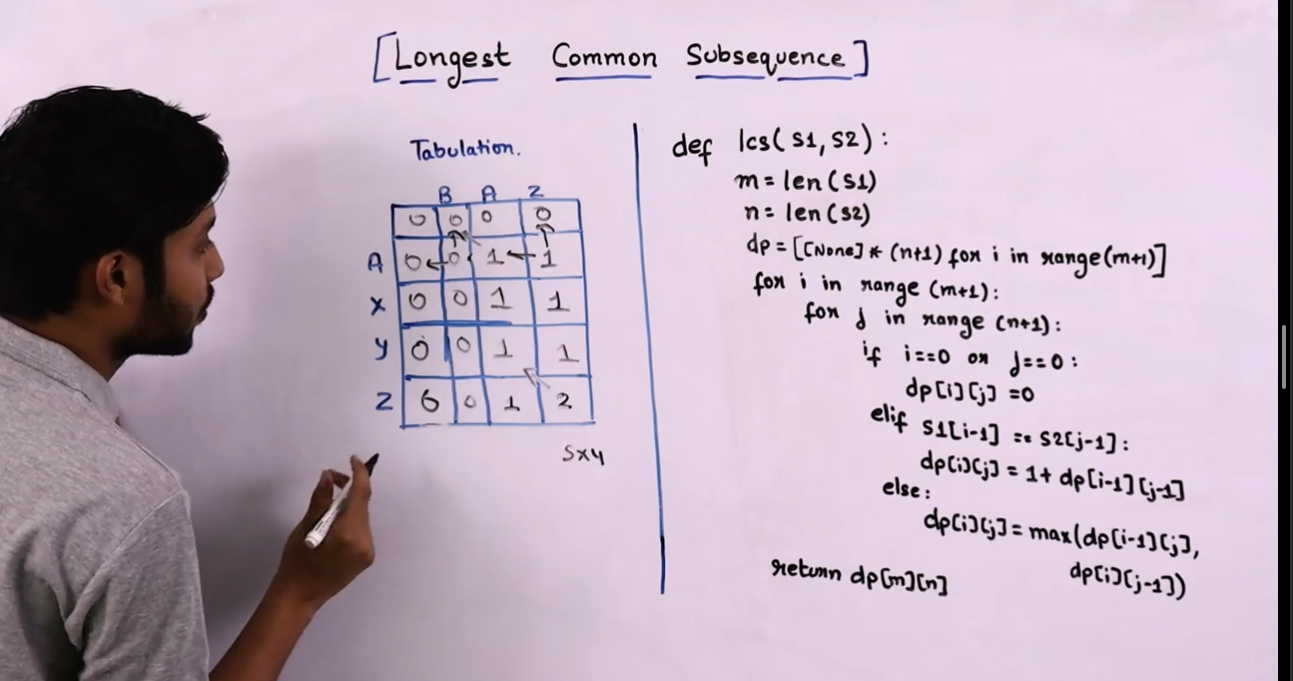 [Longest Common Subsequence]
Tabulation.
B A Z
0 0 0 0
A 0 0 1 1
X 0 0 1 1
Y 0 0 1 1
Z 0 0 1 2
5x4
def lcs(S1,S2):
m = len(S1)
n = len(S2)
dp = [[None] * (n+1) for i in range(m+1)]
for i in range (m+1):
for j in range (n+1):
if i==0 or j==0:
dp[i][j] =0
elif S1[i-1] == S2[j-1]:
dp[i][j] = 1+ dp[i-1][j-1]
else:
dp[i][j] = max(dp[i-1][j],
dp[i][j-1])
return dp[m][n]